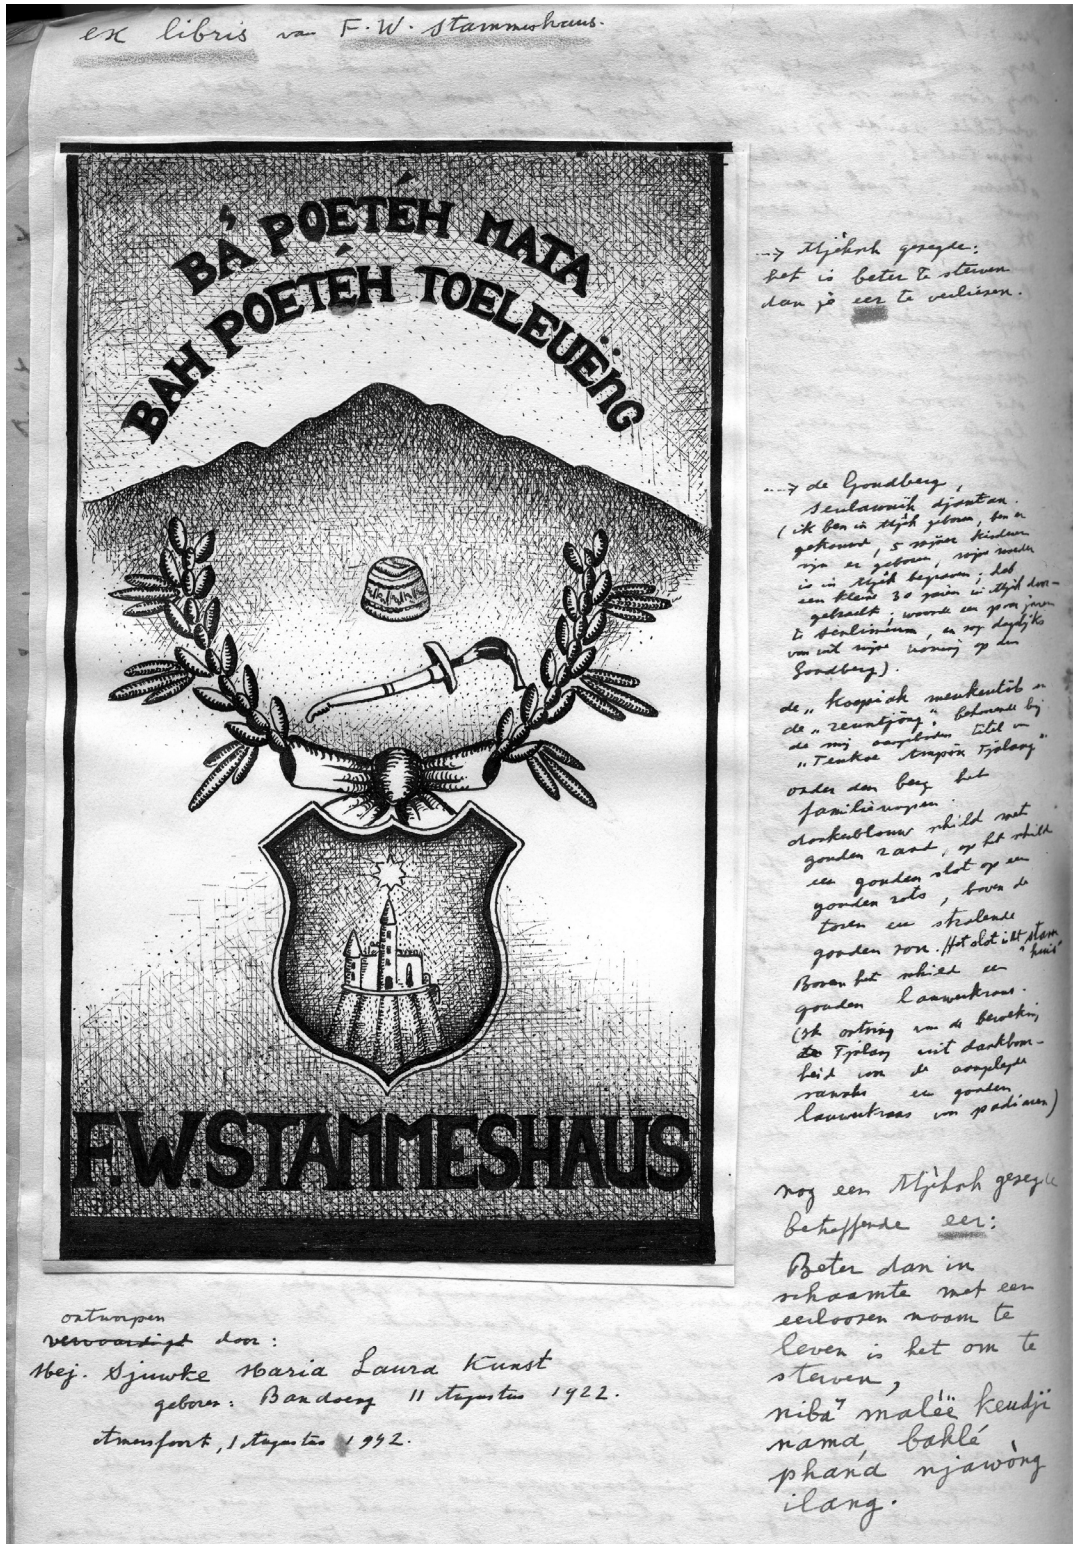 ex libris van F. W. Stammeshaus.
BA' POETÉH MATA
BAH POETÉH TOELEUËNG
F.W. STAMMESHAUS
→ Atjèhsch gezegde:
het is beter te sterven
dan je eer te verliezen.
→ de Goudberg,
Seulawaih djantan.
(ik ben in Atjèh geboren, ben er
gehuwd, 5 mijner kinderen
zijn er geboren, mijn moeder
is in Atjèh begraven; heb
een kleine 30 jaren in Atjèh door-
gebracht; woonde een paar jaren
te Seulimeum, en zag dagelijks
van uit mijne woning op den
Goudberg).
de „Koepiah meukeutöb en
de „reuntjōng", behoorende bij
de mij aangeboden titel van
„Teukoe Ampōn Tjalang"
onder den berg het
familiewapen:
donkerblauw schild met
gouden rand, op het schild
een gouden slot op een
gouden rots, boven de
toren een stralende
gouden zon. Het slot is het „stam
huis"
Boven het schild een
gouden lauwerkrans.
(ik ontving van de bevolking
Tjalang uit dankbaar-
heid voor de aangelegde
sawahs een gouden
lauwerkrans van padiaren)
nog een Atjèhsch gezegde
betreffende eer:
Beter dan in
schaamte met een
eerloozen naam te
leven is het om te
sterven,
niba' malèë keudji
nama, bahlé
phana njawòng
ilang.
ontworpen
vervaardigd door:
Mej. Sjuwke Maria Laura Kunst
geboren: Bandoeng 11 Augustus 1922.
Amersfoort, 1 Augustus 1942.